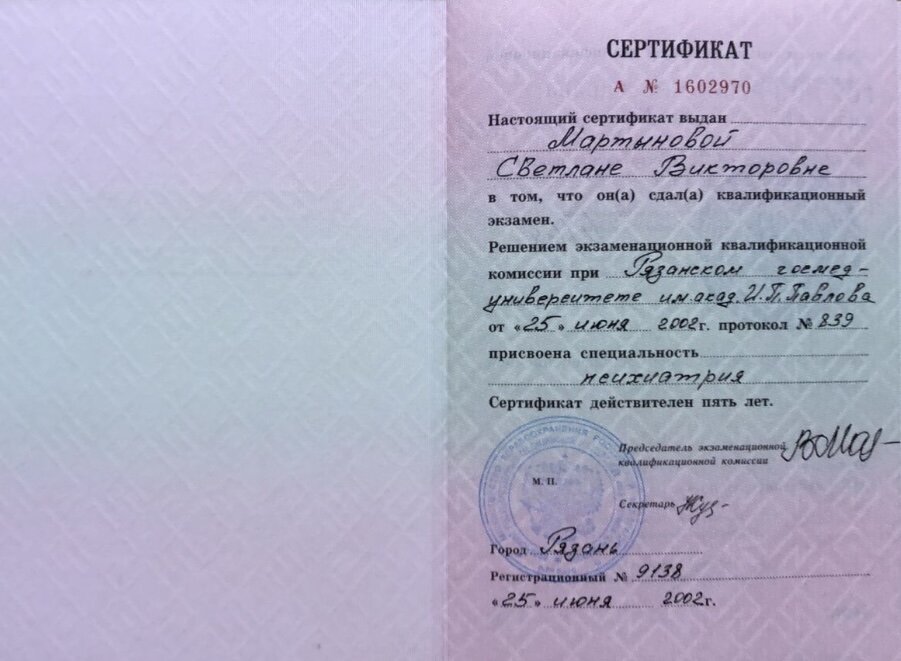 СЕРТИФИКАТ
А № 1602970
Настоящий сертификат выдан
Мартыновой
Светлане Викторовне
в том, что он(а) сдал(а) квалификационный
экзамен.
Решением экзаменационной квалификационной
комиссии при Рязанском госмед-
университете им. акад. И.П. Павлова
от «25» июня 2002г. протокол № 839
присвоена специальность
психиатрия
Сертификат действителен пять лет.
Председатель экзаменационной
квалификационной комиссии
М. П.
Секретарь
Город Рязань
Регистрационный № 9138
«25» июня 2002г.